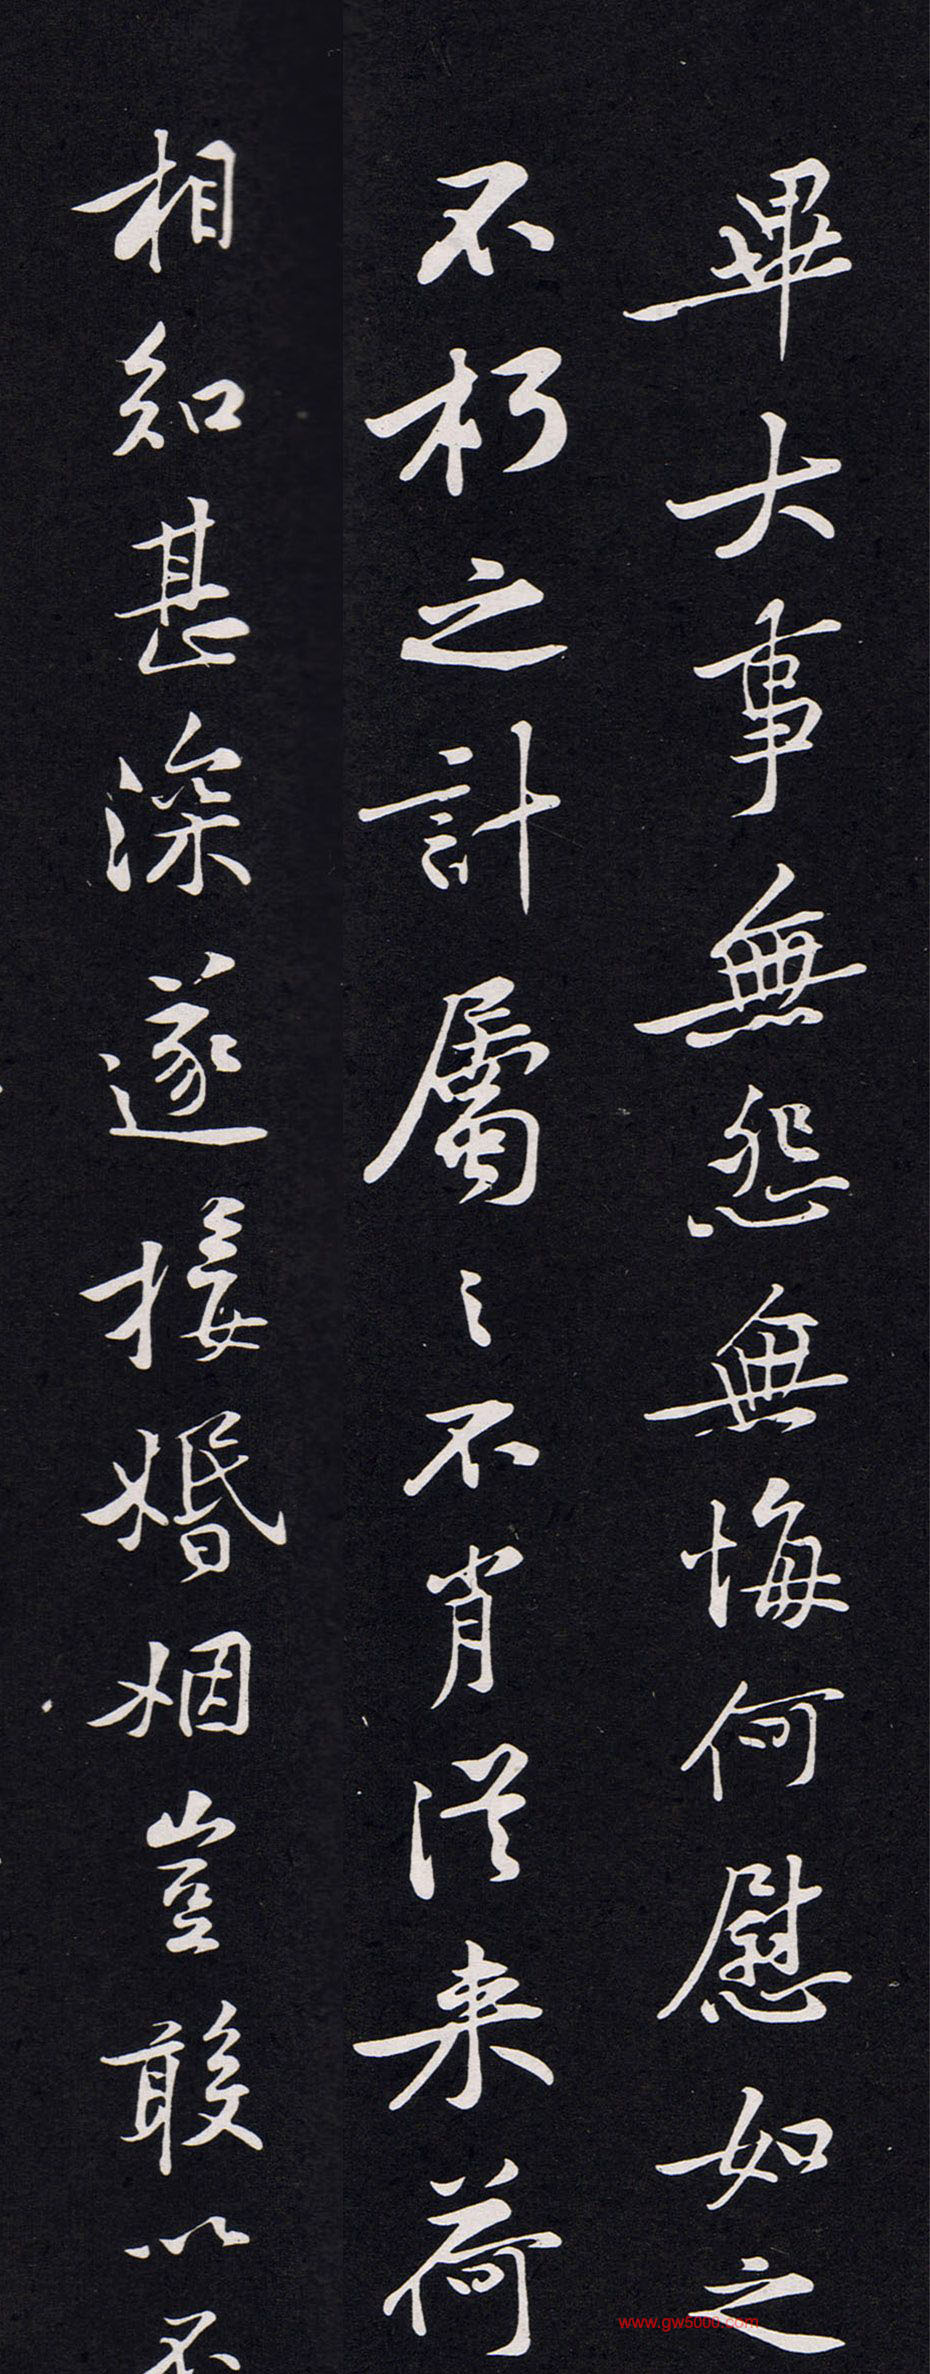 畢大事無怨無悔何慰如之
不朽之計屬〻不肖從来荷
相知甚深遂接婚姻豈敢以不
www.gw5000.com